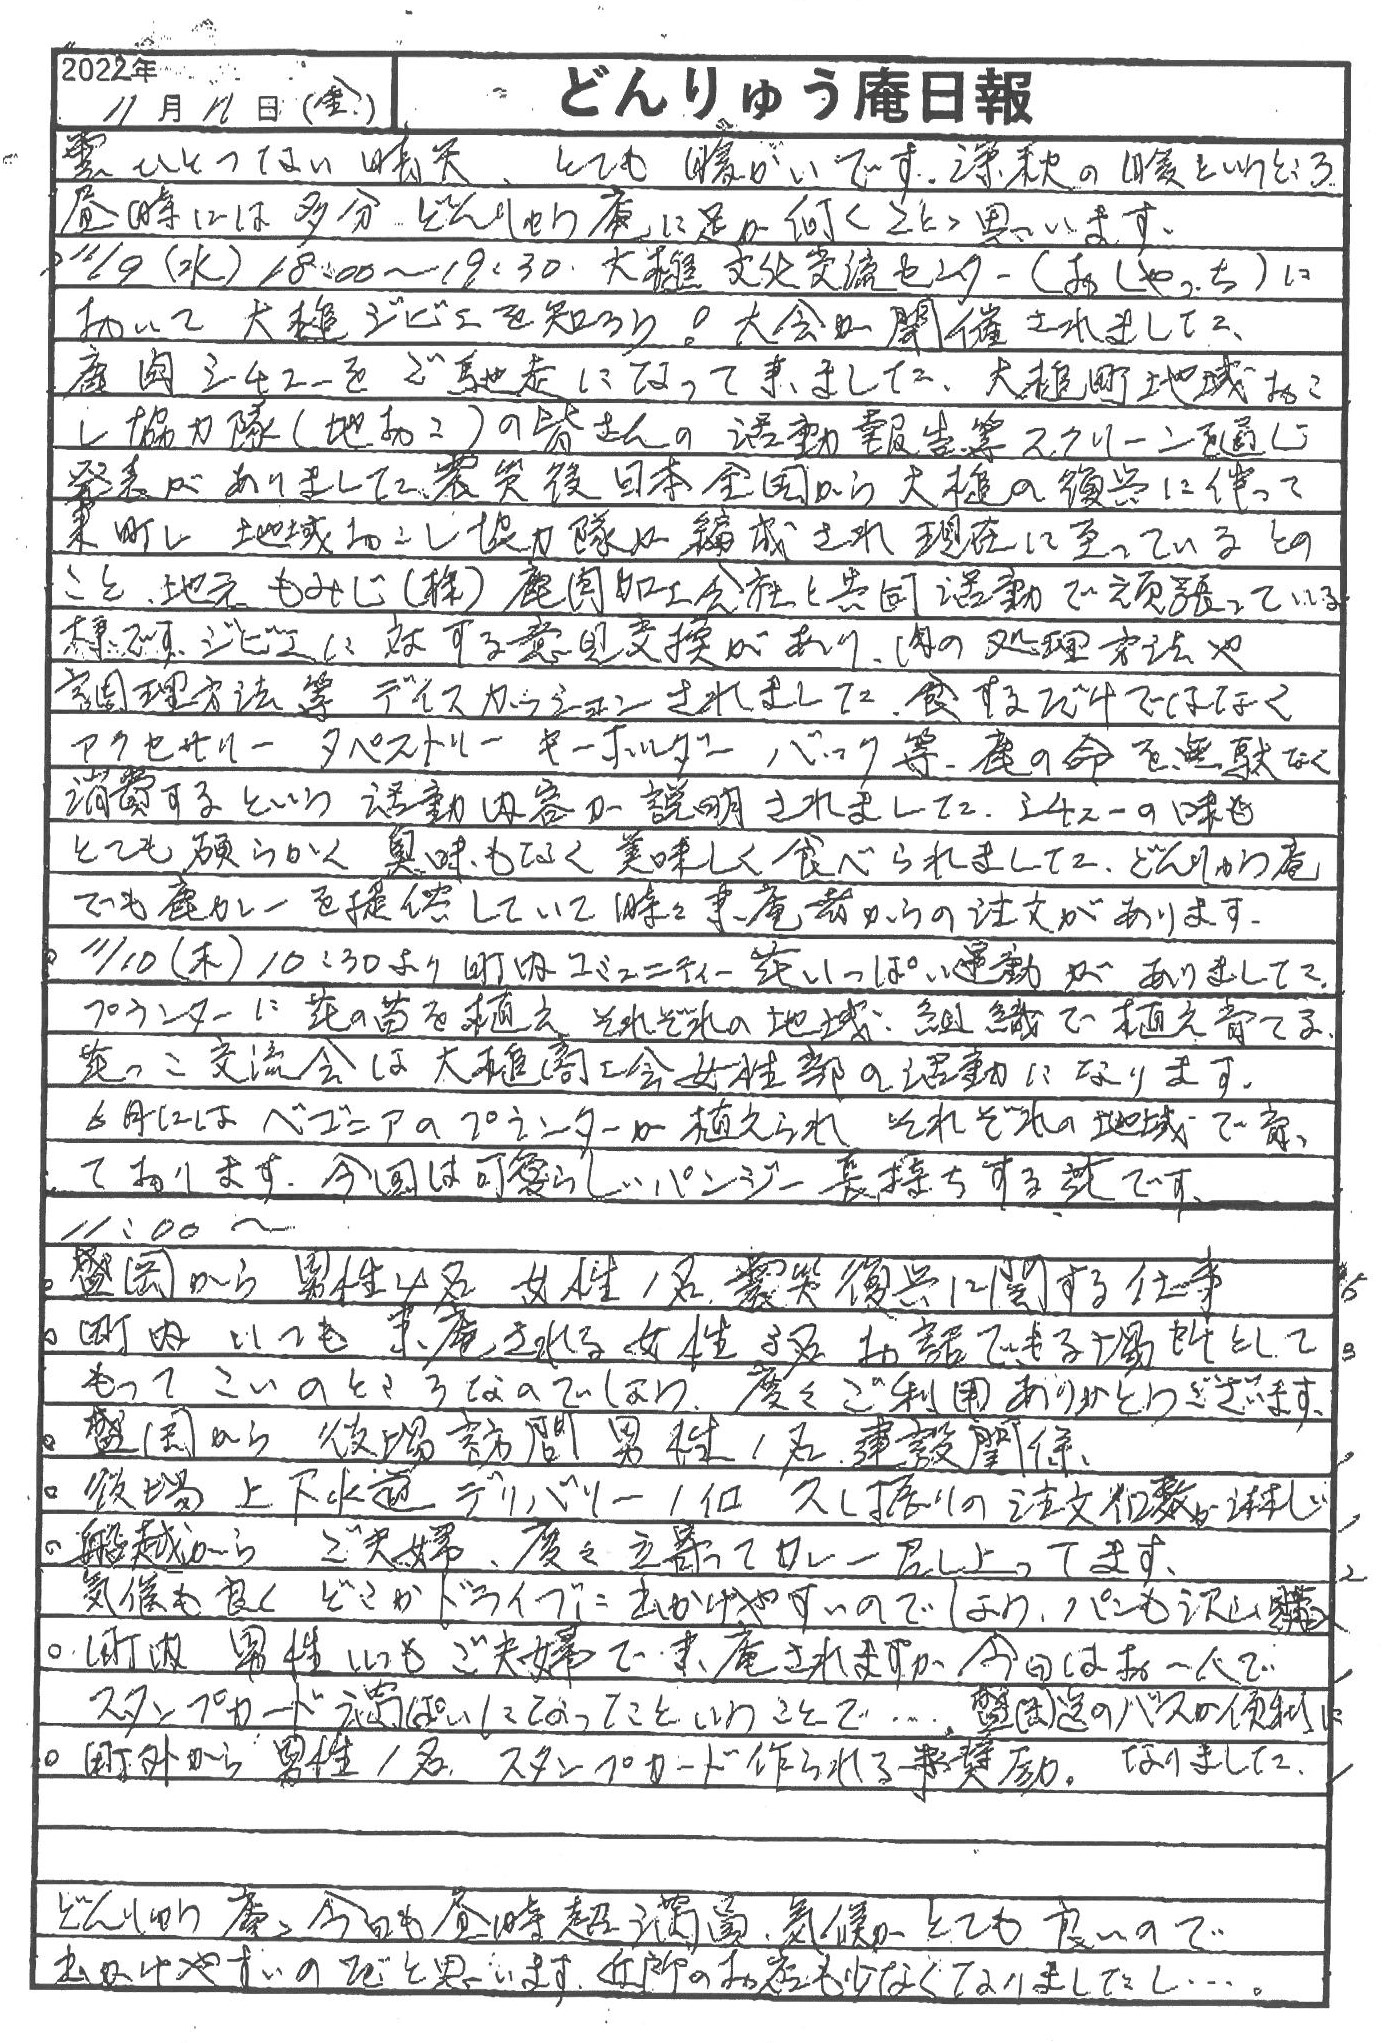 2022年
11月11日(金)
どんりゅう庵日報
雲ひとつない晴天、とても暖かいです。深秋の暖というところ
昼時には多分どんりゅう庵に足が向くことと思います。
11/9(水)18:00〜19:30 大槌文化交流センター(おしゃっち)に
おいて大槌ジビエを知ろう!大会が開催されました。
鹿肉シチューをご馳走になって来ました。大槌町地域おこ
し協力隊(地おこ)の皆さんの活動報告等スクリーンを通し
発表がありました。震災後日本全国から大槌の復興に伴って
来町し地域おこし協力隊が編成され現在に至っているとの
こと、地元もみじ(株)鹿肉加工会社と共同活動で頑張っている
様です。ジビエに対する意見交換があり、肉の処理方法や
調理方法等ディスカッションされました。食するだけではなく
アクセサリー タペストリー キーホルダー バック等、鹿の命を無駄なく
消費するという活動内容が説明されました。シチューの味も
とても軟らかく臭味もなく美味しく食べられました。どんりゅう庵
でも鹿カレーを提供していて時々来庵者からの注文があります。
11/10(木)10:30より町内コミュニティー花いっぱい運動がありました。
プランターに花の苗を植えそれぞれの地域、組織で植え育てる。
花っこ交流会は大槌商工会女性部の活動になります。
6月にはベゴニアのプランターが植えられそれぞれの地域で育っ
ております。今回は可愛らしいパンジー長持ちする花です。
11:00〜
○盛岡から 男性4名 女性1名 震災復興に関する仕事 5
○町内 いつも来庵される女性3名 お話できる場所として 3
もってこいのところなのでしょう。度々ご利用ありがとうございます。
○盛岡から 役場訪問 男性1名 建設関係、 1
○役場 上下水道 デリバリー1個 久し振りの注文 個数が淋しい 1
○船越から ご夫婦、度々立寄ってカレー召し上ってます。 2
気候も良く どこかドライブに出かけやすいのでしょう、パンも沢山購入
○町内 男性 いつもご夫婦で来庵されますが今日はお一人で 1
スタンプカード満ぱいになったということで…。盛岡迄のバスが便利に
○町外から男性1名 スタンプカード作られる事奨励。 なりました。 1
どんりゅう庵、今日も昼時超満員、気候がとても良いので
出かけやすいのだと思います。近所のお店も少なくなりましたし…。